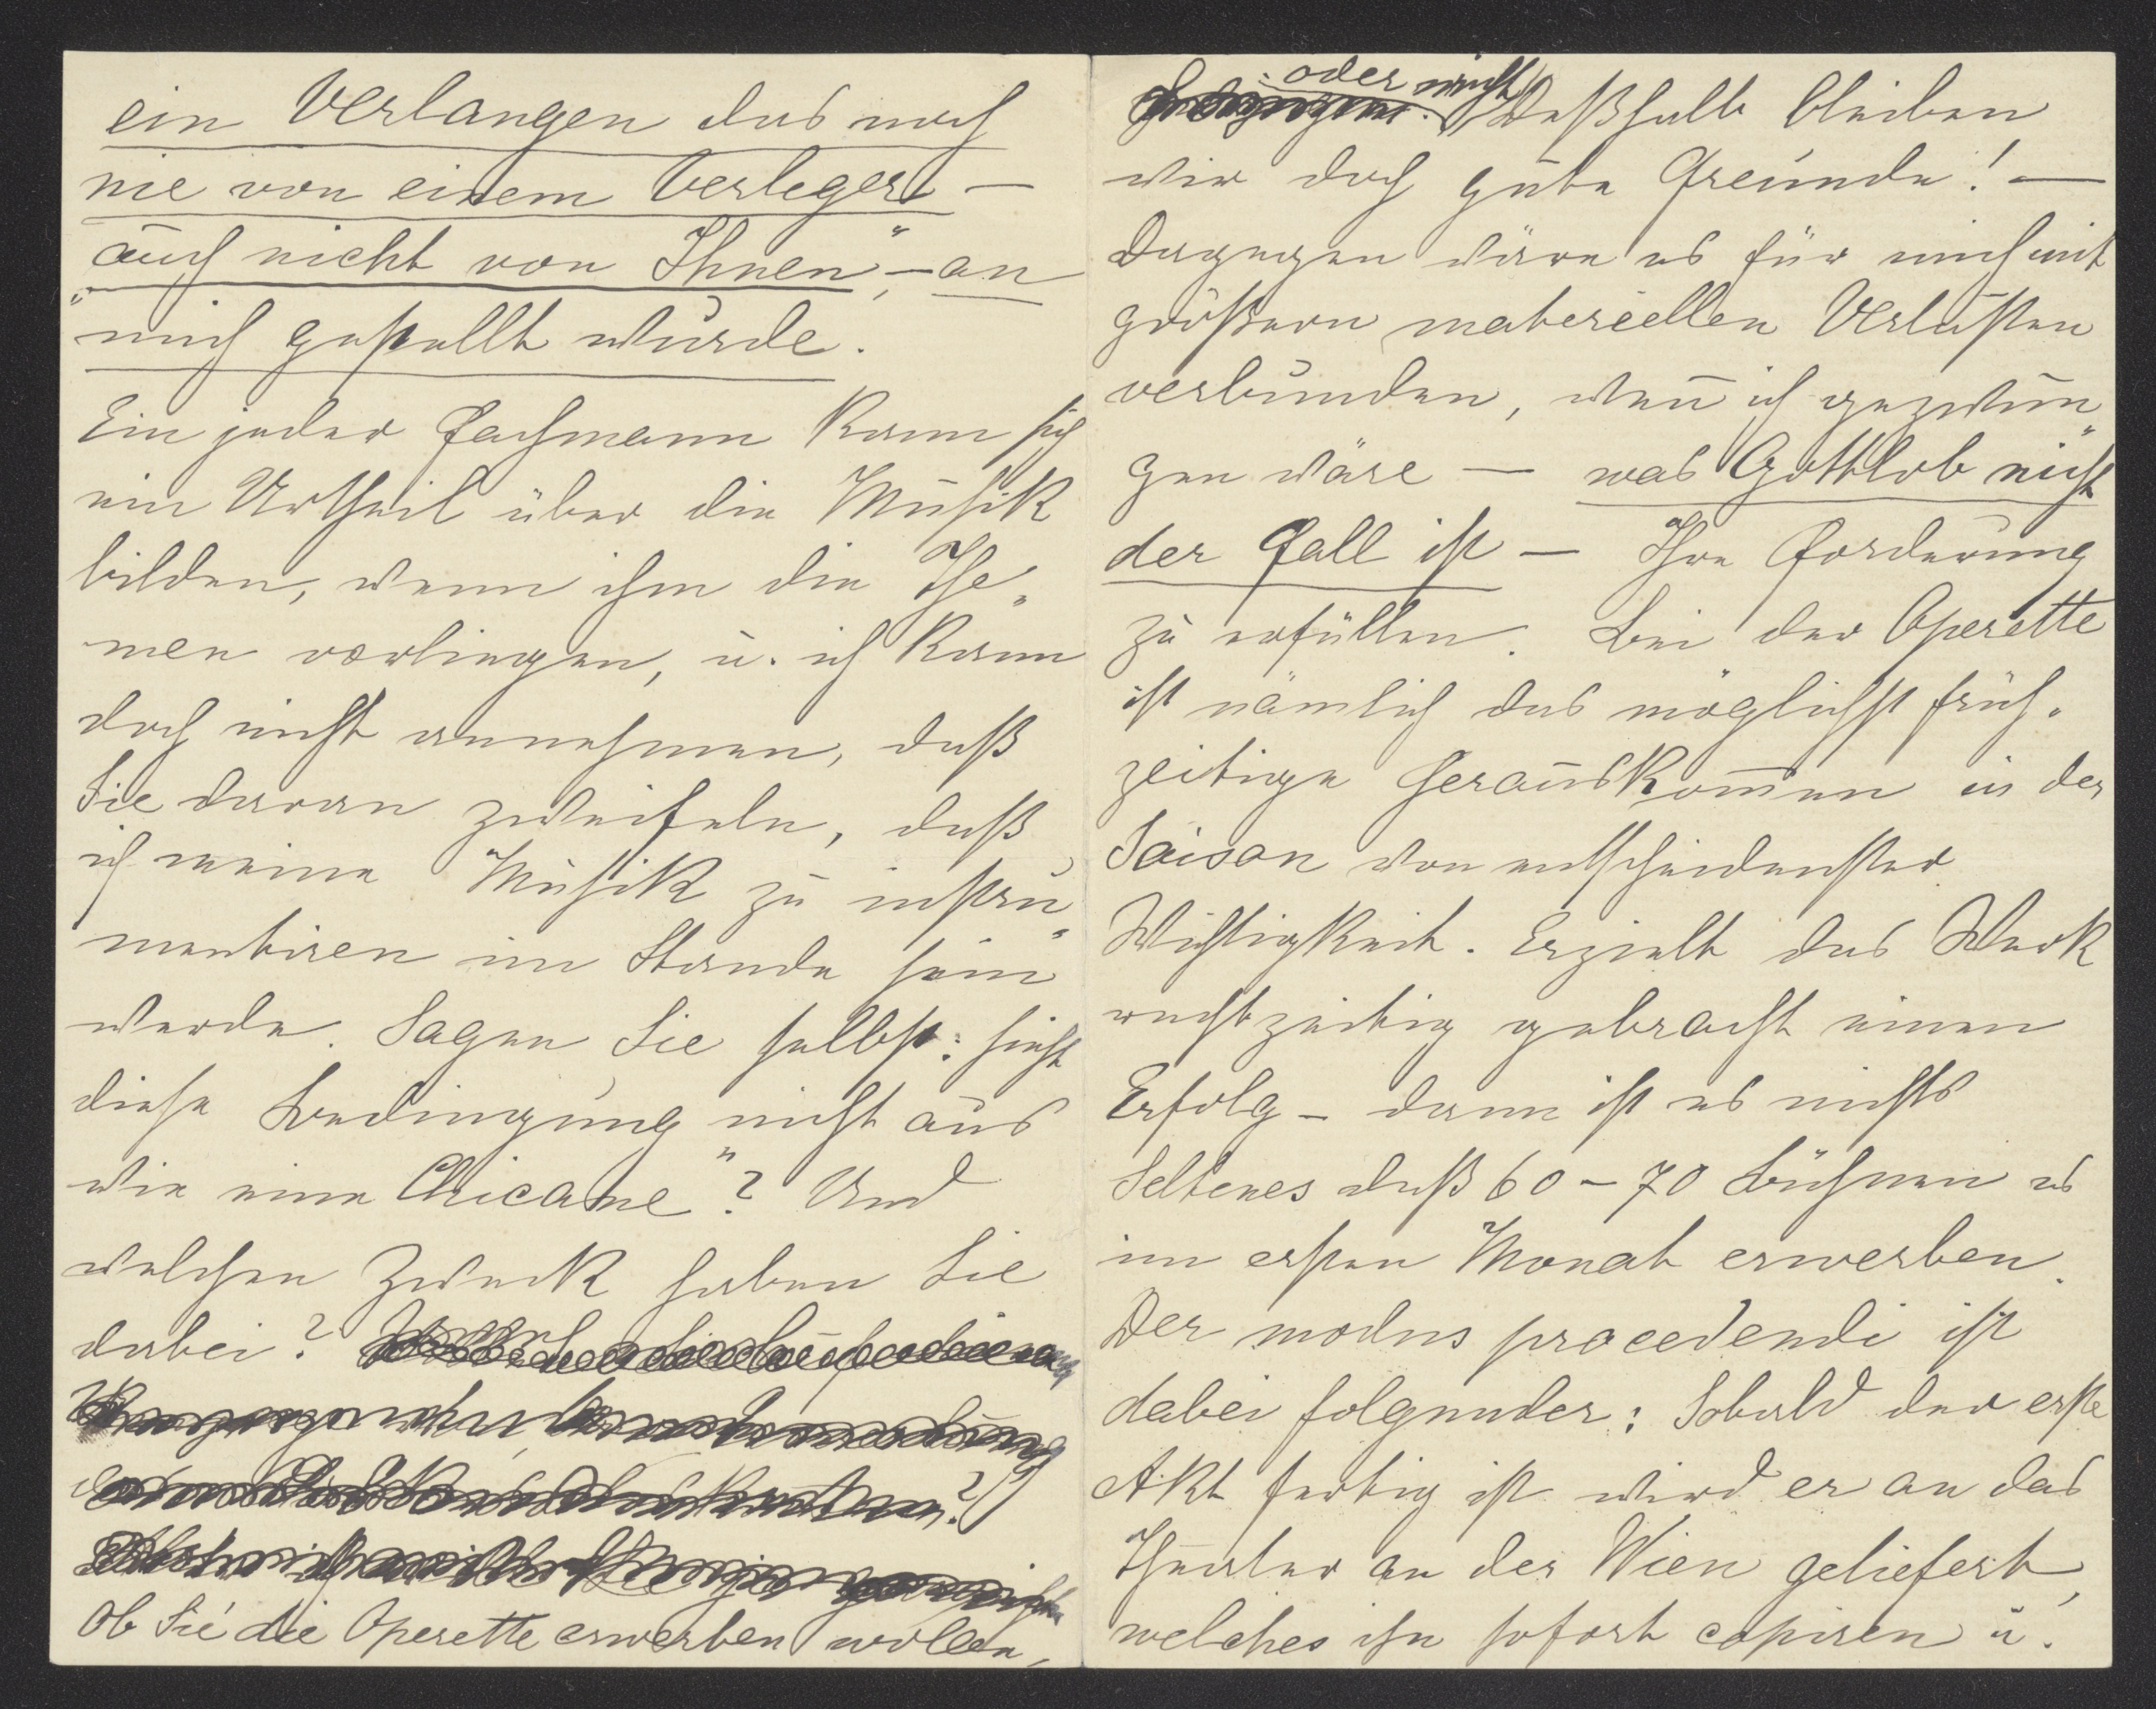 ein Verlangen das noch
nie von einem Verleger —
auch nicht von Ihnen — an
mich gestellt wurde.
Ein jeder Fachmann kann sich
ein Urtheil über die Musik
bilden, wenn ihm die The-
men vorliegen, u. ich kann
doch nicht annehmen, daß
Sie daran zweifeln, daß
ich meine Musik zu instru-
mentiren im Stande sein
werde. Sagen Sie selbst: sieht
diese Bedingung nicht aus
wie eine "Chicane"? Und
welchen Zweck haben Sie
dabei?
Ob Sie die Operette erwerben wollen,
oder nicht
Deßhalb bleiben
wir doch gute Freunde! —
Dagegen wäre es für mich mit
größern materiellen Verlusten
verbunden, weñ ich gezwun-
gen wäre — was Gottlob nicht
der Fall ist — Ihre Forderung
zu erfüllen. Bei der Operette
ist nämlich das möglichst früh-
zeitige Herauskom̄en in der
Saison von entscheidenster
Wichtigkeit. Erzielt das Werk
rechtzeitig gebracht einen
Erfolg — dann ist es nichts
Seltenes daß 60 – 70 Bühnen es
im ersten Monat erwerben.
Der modus procedendi ist
dabei folgender: Sobald der erste
Akt fertig ist wird er an das
Theater an der Wien geliefert,
welches ihn sofort copiren u.